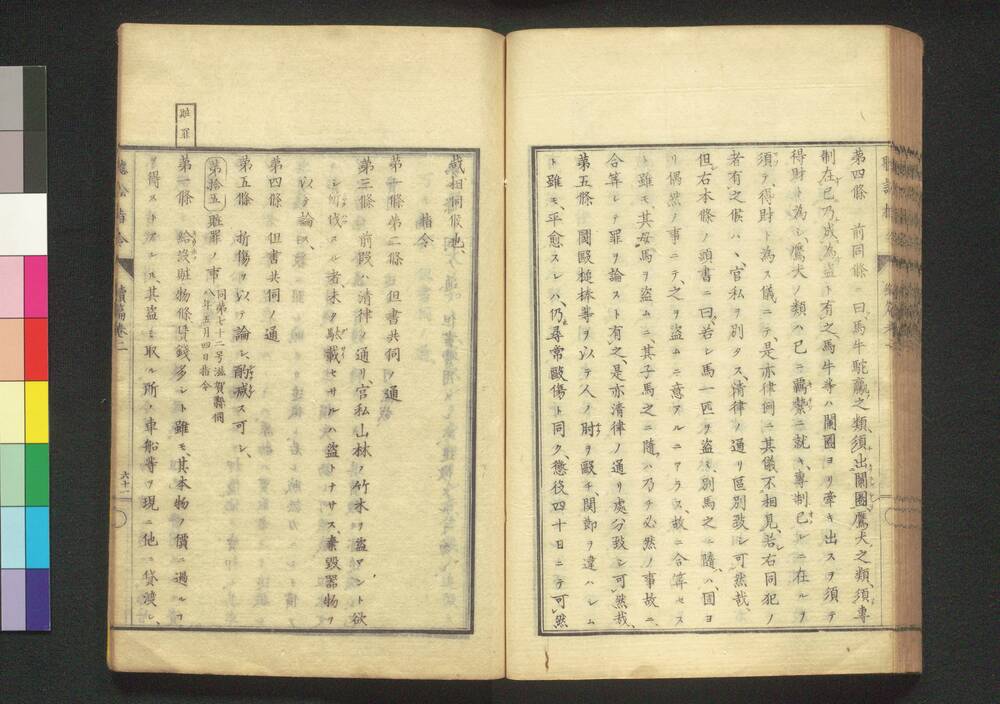 第四條 前同條ニ曰、馬牛駝驘之類須出闌圈鷹犬之類、須專
制在己乃成為盗ト有之馬牛等ハ闌圈ヨリ牽キ出スヲ須テ
得財ト為シ、鷹犬ノ類ハ已ニ羈縶ニ就キ、專制己レニ在ルヲ
須テ、得財ト為ス儀ニテ、是亦律例ニ其儀不相見、若右同犯ノ
者有之候ハヽ、官私ヲ別タス、清律ノ通リ區別致シ可然哉、
但右本條ノ頭書ニ曰、若シ馬一匹ヲ盗ミ、別馬之ニ隨ハ、固ヨ
リ偶然ノ事ニテ、之ヲ盗ムニ意アルニアラス、故ニ合算セス
ト雖モ、其母馬ヲ盗ムニ其子馬之ニ隨ハ乃チ必然ノ事故ニ、
合算シテ罪ヲ論スト有之、是亦清律ノ通リ處分致シ可然哉、
第五條 闘毆槌棒等ヲ以テ人ノ肘ヲ毆チ、関節ヲ違ハシム
ト雖モ、平愈スレハ、仍尋常毆傷ト同ク、懲役四十日ニテ可然
哉、相伺候也、
指令
第一條 第二條 但書共伺ノ通
第三條 前段ハ清律ノ通リ、官私山林ノ竹木ヲ盗マント欲
シ斫伐スル者未タ駄載セサルハ盗トナサス、棄毀器物ヲ
以テ論ス、
第四條 但書共伺ノ通
第五條 折傷ヲ以テ論シ、酌減ス可シ、
贓罪
第拾五 贓罪ノ事 同第七十二号滋賀縣伺
八年五月四日指令
第一條 給没贓物條賃錢多シト雖モ、其本物ノ價ニ過ルヿ
ヲ得ストアレ𪜈、其盗ミ取ル所ノ車船等ヲ現ニ他ニ貸渡シ、
續編卷二
六十一